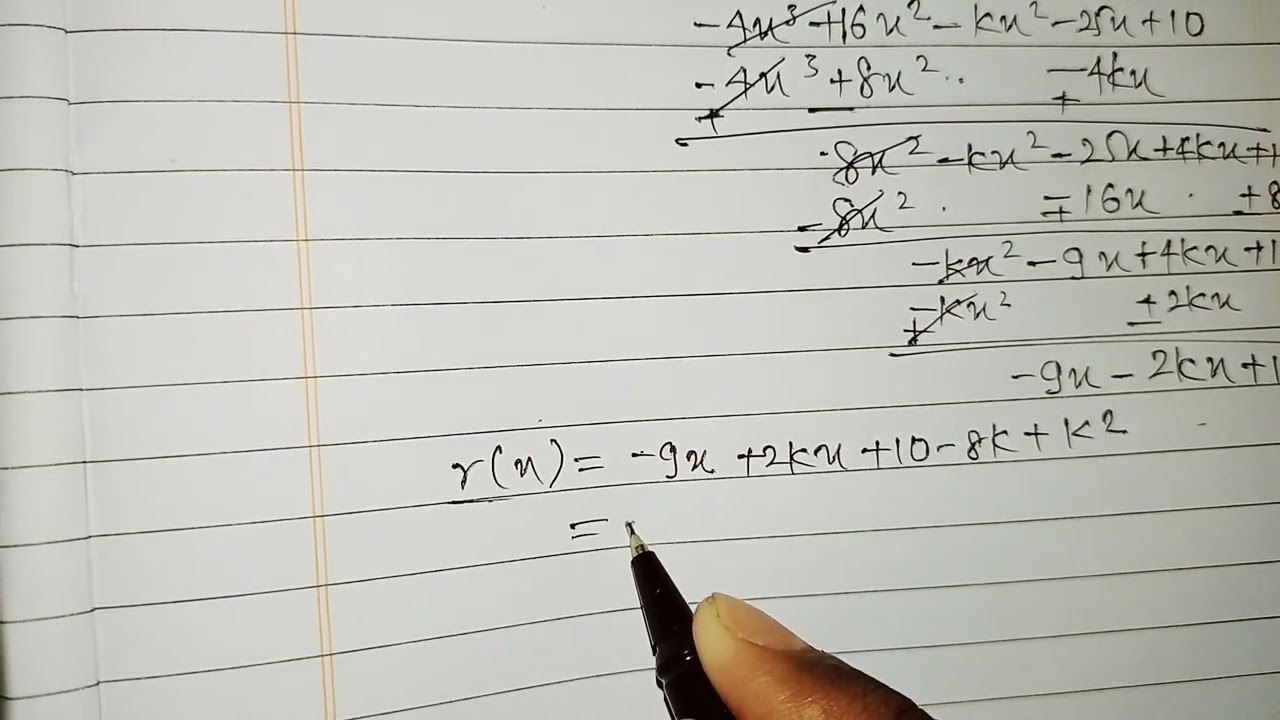 -4x³ +16x² - kx² - 25x + 10
-4x³ + 8x² -4kx
+
8x² - kx² - 25x + 4kx + 1
8x² 16x + 8
-kx² - 9x + 4kx + 1
-kx² + 2kx
-9x - 2kx + 1
r(x) = -9x + 2kx + 10 - 8k + k²
=